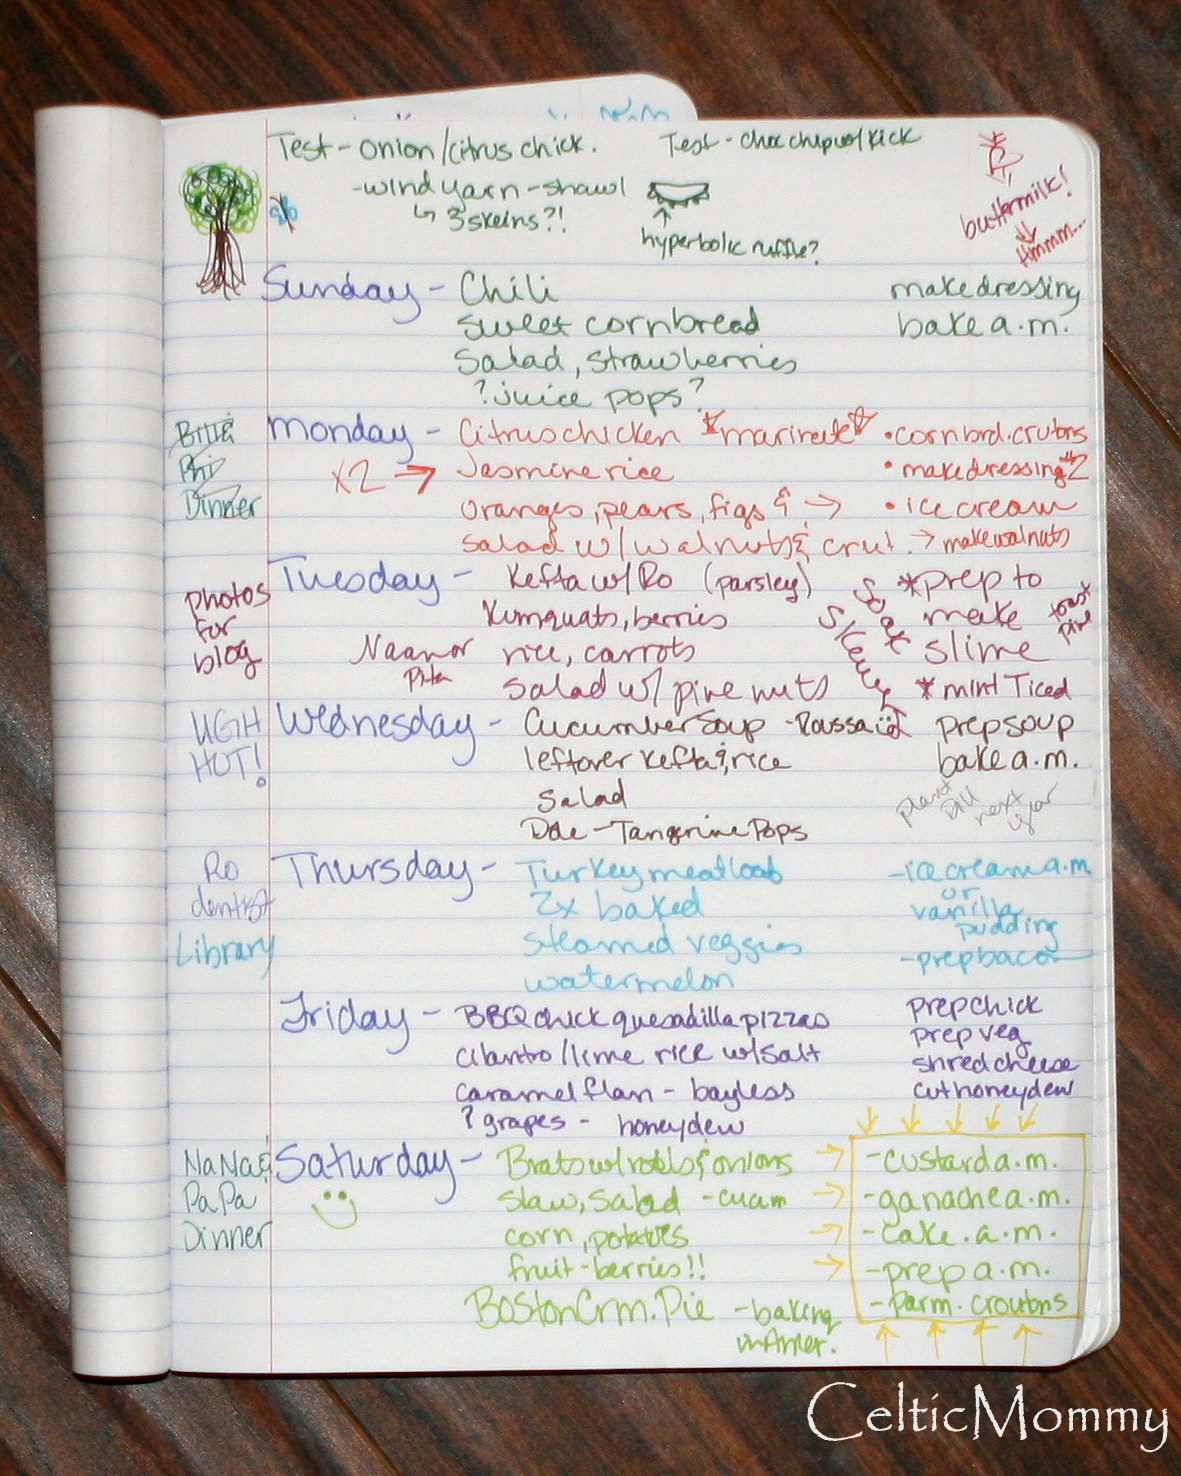 Test - onion/citrus chick.
Test - choc chip w/ kick
- wind yarn - shawl
↳ 3 skeins?!
hyperbolic ruffle?
buttermilk!
Hmmm...
Sunday - Chili
make dressing
sweet cornbread
bake a.m.
Salad, strawberries
? juice pops?
Monday - Citrus chicken *marinate* • cornbrd. crutons
Dinner
x2 → Jasmine rice
• make dressing #2
oranges, pears, figs & → • ice cream
salad w/ walnuts & crut. → make walnuts
Tuesday - Kefta w/ Ro (parsley)
photos
for
blog
Kumquats, berries
Naan or rice, carrots
Pita
salad w/ pine nuts
Soak
Skewers
*prep to
make
slime
toast
pine
* mint Ticed
UGH
HOT!
Wednesday - Cucumber Soup - Roussaud
prep soup
leftover kefta & rice
bake a.m.
Salad
Dole - Tangerine Pops
plant
Dill
next
year
Ro
dentist
Library
Thursday - Turkey meatloaf
2x baked
steamed veggies
watermelon
- ice cream a.m.
or
vanilla
pudding
- prep bacon
Friday - BBQ chick quesadilla pizzas
cilantro/lime rice w/ salt
caramel flan - bayless
? grapes - honeydew
prep chick
prep veg
shred cheese
cut honeydew
NaNa &
PaPa
Dinner
Saturday - Brats w/ rolls & onions → - custard a.m.
slaw, salad - cuam → - ganache a.m.
corn, potatoes → - cake . a.m.
fruit - berries!! → - prep a.m.
Boston Crm. Pie - baking
in Amer.
- Parm. croutons
CelticMommy